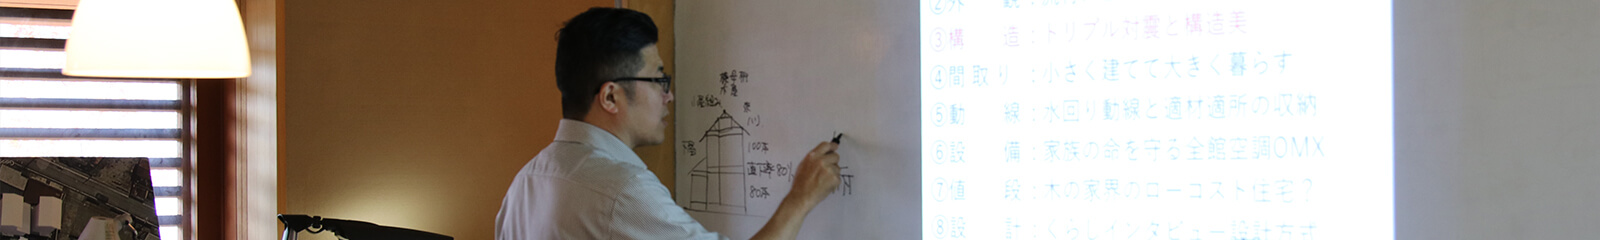 小屋組み
下屋
100%
直下率80%
80%
③構　造：トリプル対震と構造美
④間取り：小さく建てて大きく暮らす
⑤動　線：水回り動線と適材適所の収納
⑥設　備：家族の命を守る全館空調OMX
⑦値　段：木の家界のローコスト住宅？
⑧設　計：くらしインタビュー設計方式